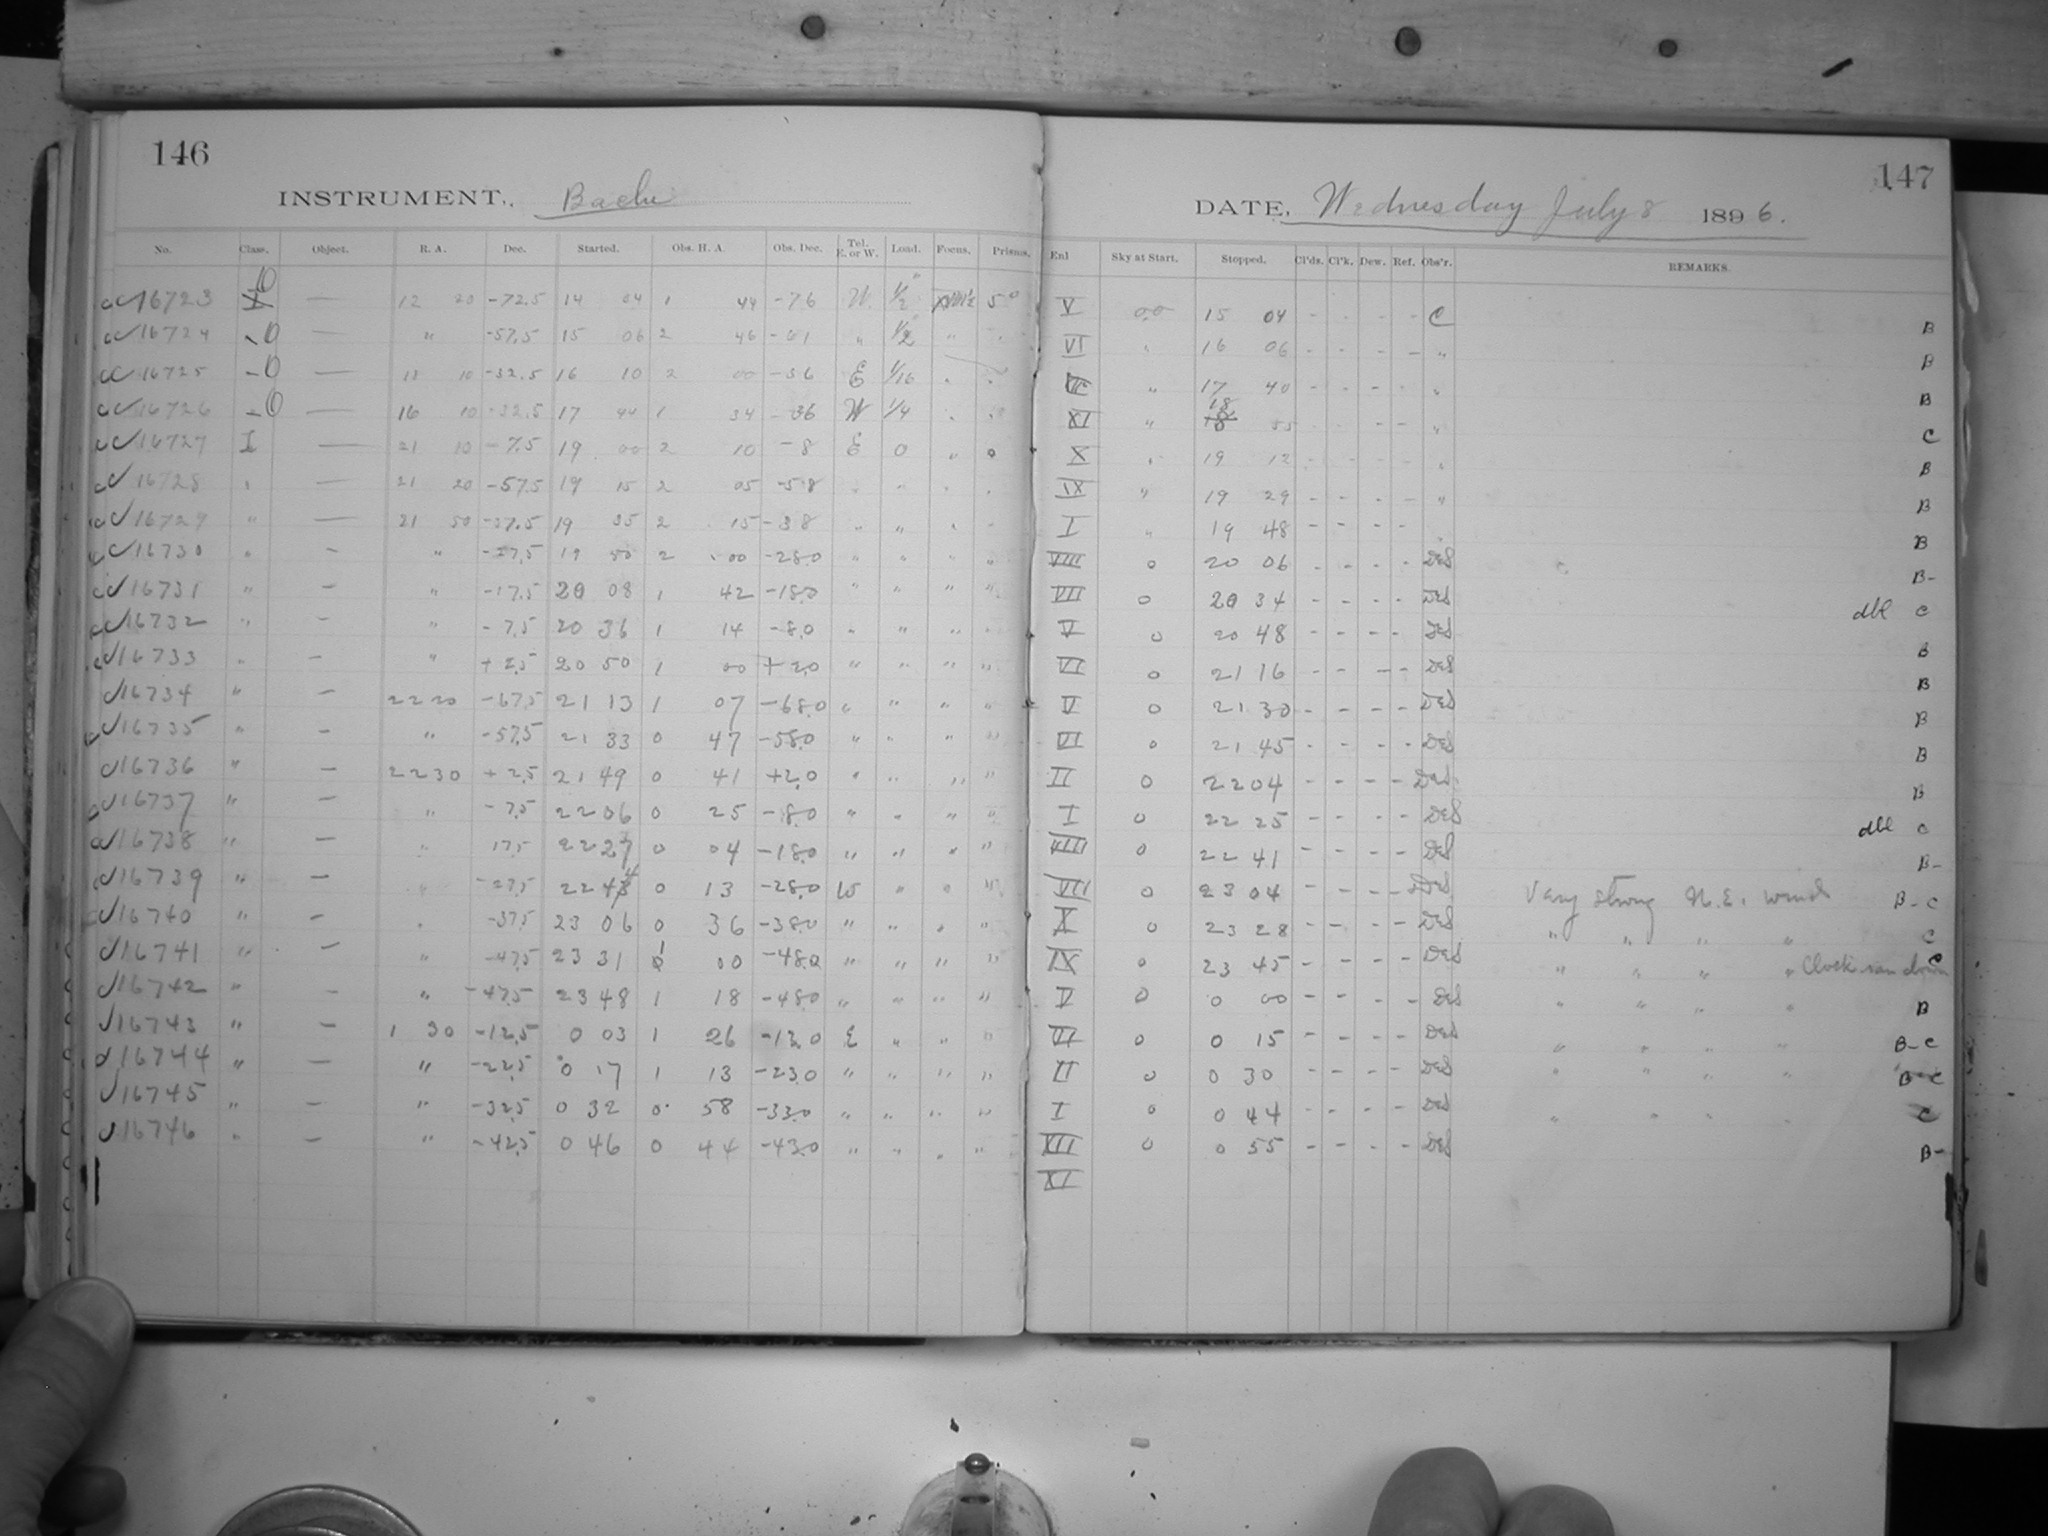 146
INSTRUMENT, Bache
No. Class. Object. R. A. Dec. Started. Obs. H. A. Obs. Dec. Tel. E. or W. Load. Focus. Prisms.
16723 — 12 20 -72.5 14 04 1 44 -76 W. 1/2 5°
16724 O — " -57.5 15 06 2 46 -61 " 1/2 "
16725 O — 13 10 -32.5 16 10 2 00 -36 E 1/16
16726 O — 16 10 -32.5 17 44 1 34 -36 W 1/4
16727 I — 21 10 -7.5 19 00 2 10 -8 E 0 " 0
16728 " — 21 20 -57.5 19 15 2 05 -58 " " " "
16729 " — 21 50 -37.5 19 35 2 15 -38 " " " "
16730 " — " -27.5 19 50 2 00 -28.0 " " " "
16731 " — " -17.5 20 08 1 42 -18.0 " " " "
16732 " — " -7.5 20 36 1 14 -8.0 " " " "
16733 " — " +2.5 20 50 1 00 +2.0 " " " "
16734 " — 22 20 -67.5 21 13 1 07 -68.0 " " " "
16735 " — " -57.5 21 33 0 47 -58.0 " " " "
16736 " — 22 30 +2.5 21 49 0 41 +2.0 " " " "
16737 " — " -7.5 22 06 0 25 -8.0 " " " "
16738 " — " 17.5 22 27 0 04 -18.0 " " " "
16739 " — " -27.5 22 44 0 13 -28.0 W " " "
16740 " — " -37.5 23 06 0 36 -38.0 " " " "
16741 " — " -47.5 23 31 1 00 -48.0 " " " "
16742 " — " -47.5 23 48 1 18 -48.0 " " " "
16743 " — 1 30 -12.5 0 03 1 26 -13.0 E " " "
16744 " — " -22.5 0 17 1 13 -23.0 " " " "
16745 " — " -32.5 0 32 0 58 -33.0 " " " "
16746 " — " -42.5 0 46 0 44 -43.0 " " " "
147
DATE, Wednesday July 8 1896.
Enl Sky at Start. Stopped. Cl'ds. Cl'k. Dew. Ref. Obs'r. REMARKS.
V 0.0 15 04 - - - - C B
VI " 16 06 - - - - " B
" 17 40 - - - - " B
XI " 18 55 - - - - " C
X " 19 12 - - - - " B
IX " 19 29 - - - - " B
I " 19 48 - - - - " B
VIII 0 20 06 - - - - DES B-
VII 0 20 34 - - - - DES dbl C
V 0 20 48 - - - - DES B
VI 0 21 16 - - - - DES B
V 0 21 30 - - - - DES B
VI 0 21 45 - - - - DES B
II 0 22 04 - - - - DES B
I 0 22 25 - - - - DES dbl C
VIII 0 22 41 - - - - DES B-
VII 0 23 04 - - - - DES Very strong N.E. wind B-C
X 0 23 28 - - - - DES " " " " C
IX 0 23 45 - - - - DES " " " " Clock ran down C
V 0 0 00 - - - - DES " " " " B
VI 0 0 15 - - - - DES " " " " B-C
II 0 0 30 - - - - DES " " " " B-C
I 0 0 44 - - - - DES " " " " C
XII 0 0 55 - - - - DES B-
XI